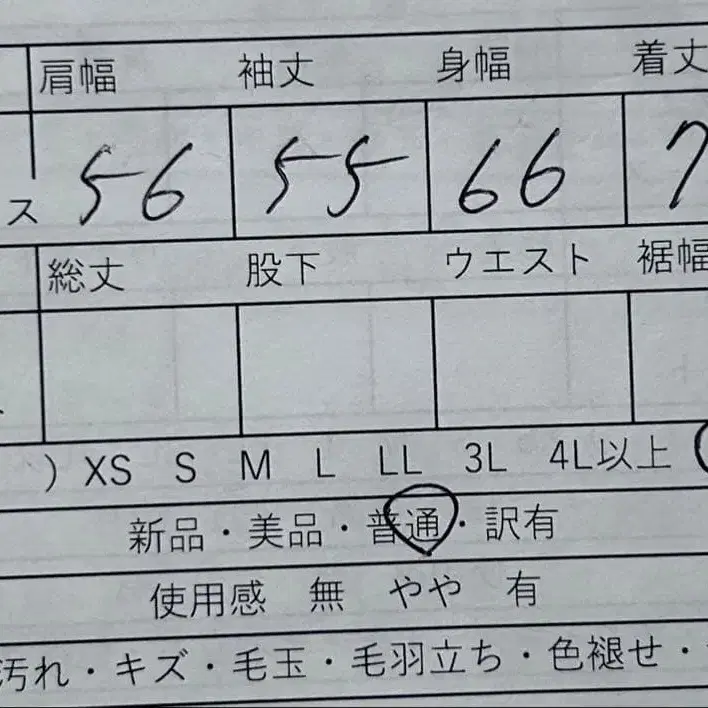 肩幅 袖丈 身幅 着丈
ス 56 55 66 7
総丈 股下 ウエスト 裾幅
) XS S M L LL 3L 4L以上 (
新品・美品・普通・訳有
使用感 無 やや 有
汚れ・キズ・毛玉・毛羽立ち・色褪せ・